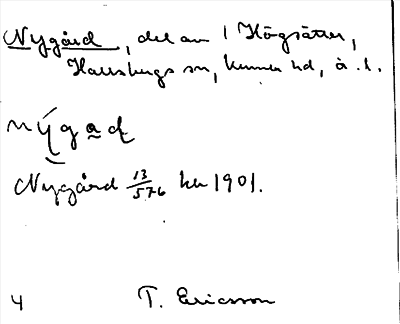 Nygård, del av 1 Högsätter,
Hallsbergs sn, Kumla hd, ö. l.
nýgad
Nygård 13/576 kb 1901.
4 T. Ericsson